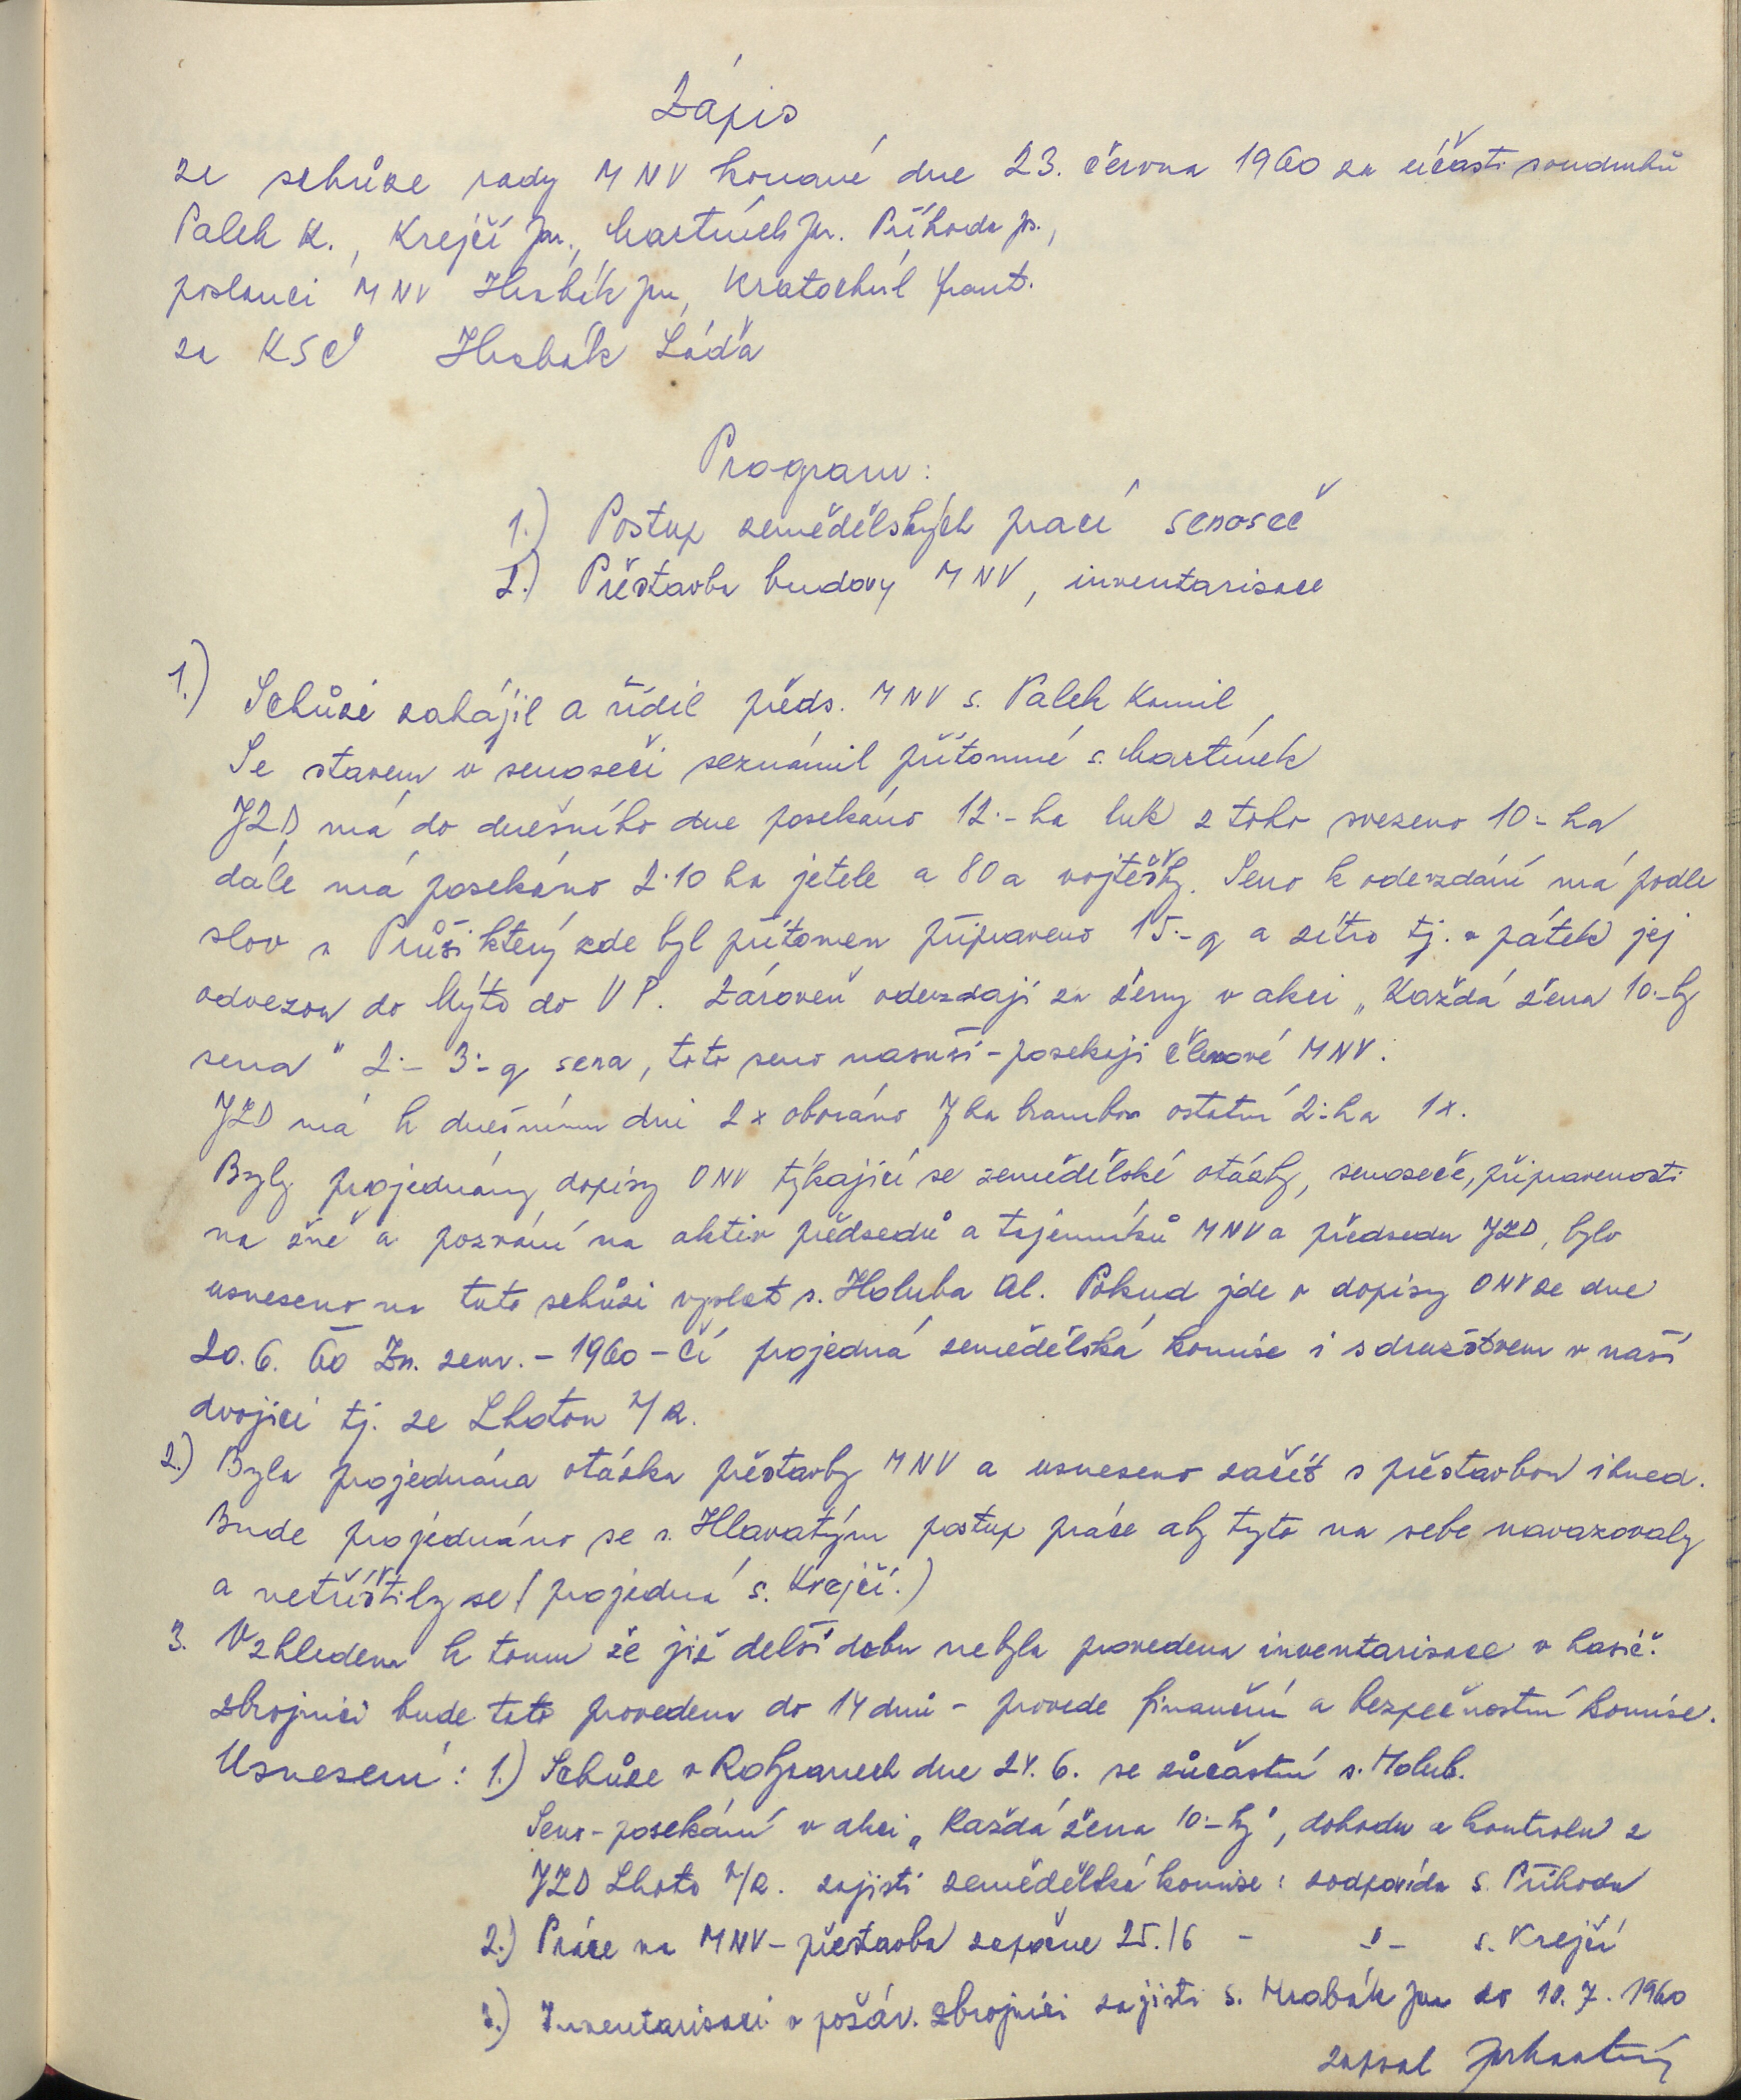 Zápis
ze schůze rady MNV konané dne 23. června 1960 za účasti soudruhů
Palek K., Krejčí Jar., Martínek Jar. Příhoda Jos.,
poslanci MNV Hrabík Jan, Kratochvíl Frant.
za KSČ Hrabák Láďa
Program:
1.) Postup zemědělských prací senoseč
2.) Přestavba budovy MNV, inventarisace
1.) Schůzi zahájil a řídil předs. MNV s. Palek Kamil,
Se stavem v senoseči seznámil přítomné s. Martínek
JZD má do dnešního dne posekáno 12.- ha luk z toho svezeno 10.- ha
dále má posekáno 2.10 ha jetele a 80 a vojtěšky. Seno k odevzdání má podle
slov s Průši který zde byl přítomen připraveno 15.- q a zítra tj. v pátek jej
odvezou do Mýta do VP. Zároveň odevzdají za ženy v akci „Každá žena 10.- kg
sena" 2.- 3.- q sena, toto seno nasuší - posekají členové MNV.
JZD má k dnešnímu dni 2x oboráno 7 ha brambor ostatní 2.- ha 1x.
Byly projednány dopisy ONV týkající se zemědělské otázky, senoseče, připravenosti
na žně a pozvání na aktiv předsedů a tajemníků MNV a předsedu JZD, bylo
usneseno na tuto schůzi vyslat s. Holuba Al. Pokud jde o dopisy ONV ze dne
20.6. 60 Zn. zem. - 1960 - Čí projedná zemědělská komise i s družstvem v naší
dvojici tj. ze Lhotou n/R.
2.) Byla projednána otázka přestavby MNV a usneseno začít s přestavbou ihned.
Bude projednáno se s. Hlavatým postup práce aby tyto na sebe navazovaly
a netříštily se (projedná s. Krejčí.)
3. Vzhledem k tomu že již delší dobu nebyla provedena inventarisace v hasič.
zbrojnici bude tato provedena do 14 dnů - provede finanční a bezpečnostní komise.
Usnesení: 1.) Schůze v Rokycanech dne 24.6. se zúčastní s. Holub.
Seno - posekání v akci „Každá žena 10.- kg", dohodu a kontrolu z
JZD Lhota n/R. zajistí zemědělská komise: zodpovídá s. Příhoda
2.) Práce na MNV - přestavba započne 25./6 - -"- s. Krejčí
3.) Inventarisaci v požár. zbrojnici zajistí s. Hrabák Jan do 10.7.1960
zapsal